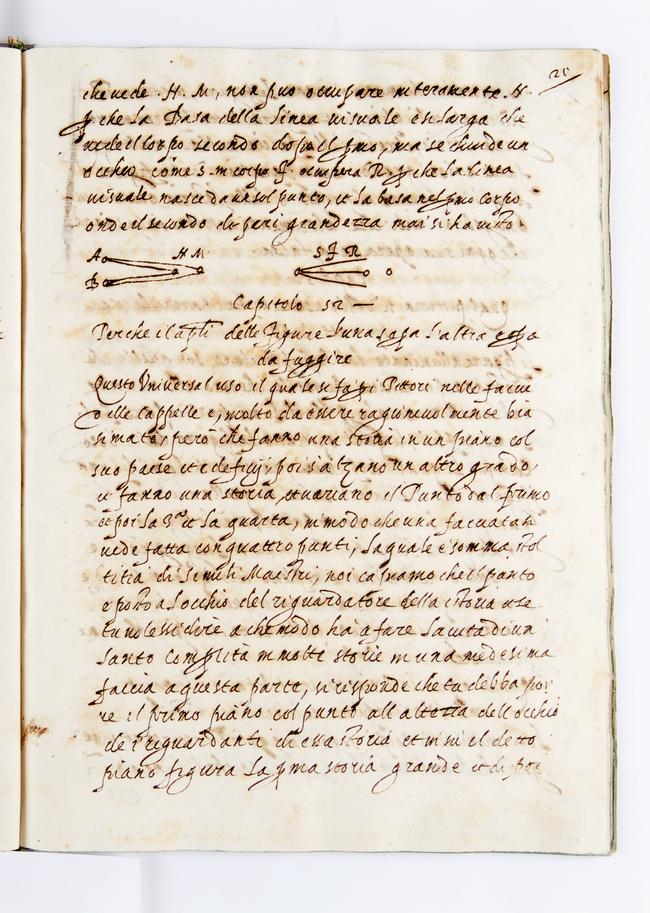 25
che uede .H. M, non puo occupare interamente. N.
p che la Basa della linea uisuale è si larga che
uede il corpo secondo dopo il pmo, ma se chiude un
occhio come S. in corpo f. ocupera R. p che la linea
uisuale nasce da un sol punto, et fa basa nel pmo corpo
onde il secondo di pari grandezza mai si ha uisto
A H M S f R
B
Capitolo 52
Perche delle figure l'una sopa l'altra e cosa
da fuggire
Questo Vniversal uso il quale si fa pi Pittori nelle faccie
delle cappelle e, molto da essere ragioneuolmente bia
simato, però che fanno una storia in un piano col
suo paese et edificij, poi s'alzano un altro grado,
et fanno una storia, et uariano il Punto dal primo
et poi la 3ª et la quarta, in modo che una facciata si
uede fatta con quattro punti, la quale è somma stol
titia di simili Maestri, noi sapiamo che il punto
è posto a l'occhio del riguardatore della istoria et se
tu uolessi dire a che modo ha a fare la uita di un
santo compartita in molte storie in una medesima
faccia a questa parte, si risponde che tu debba por
re il primo piano col punto all'altezza dell'occhio
de i riguardanti di essa storia et in su il detto
piano figura la pma storia grande et di poi